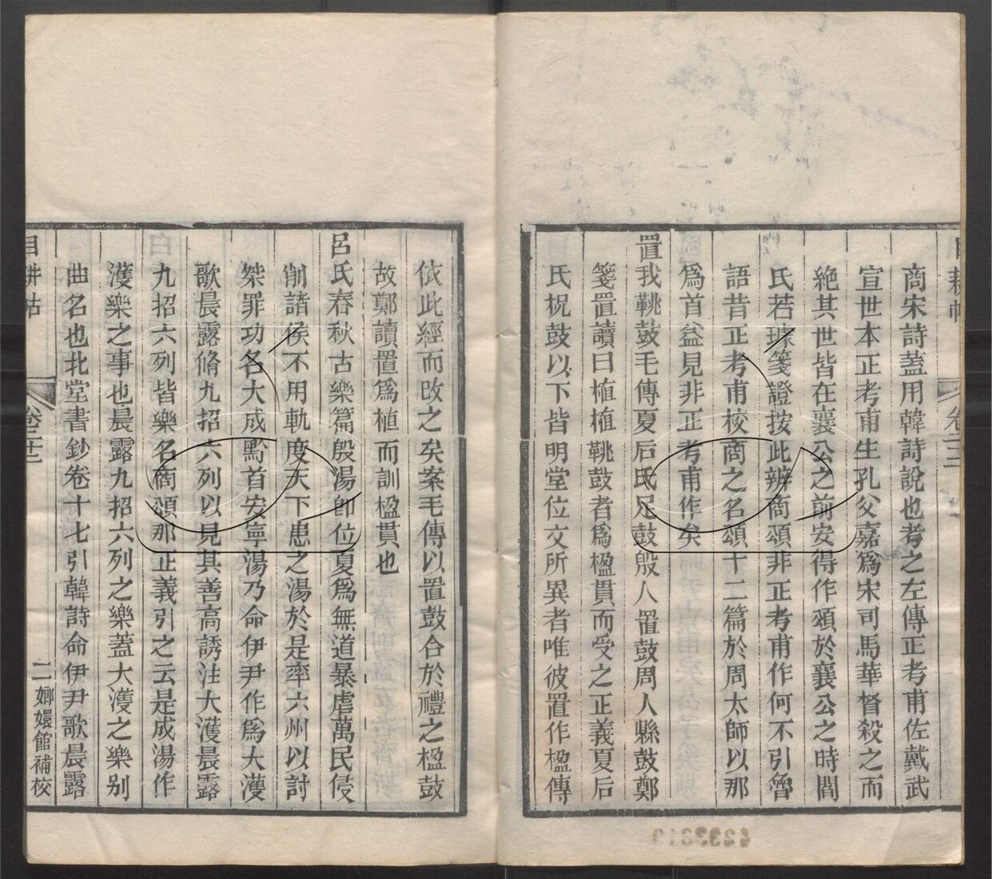 商宋詩蓋用韓詩說也考之左傳正考甫佐戴武
宣世本正考甫生孔父嘉爲宋司馬華督殺之而
絶其世皆在襄公之前安得作頌於襄公之時閻
氏若璩箋證按此辨商頌非正考甫作何不引魯
語昔正考甫校商之名頌十二篇於周太師以那
爲首益見非正考甫作矣
置我鞉鼓毛傳夏后氏足鼓殷人置鼓周人縣鼓鄭
箋置讀曰植植鞉鼓者爲楹貫而受之正義夏后
氏祝鼓以下皆明堂位文所異者唯彼置作楹傳
依此經而改之矣案毛傳以置鼓合於禮之楹鼓
故鄭讀置爲植而訓楹貫也
呂氏春秋古樂篇殷湯卽位夏爲無道暴虐萬民侵
削諸侯不用軌度天下患之湯於是率六州以討
桀罪功名大成黔首安寧湯乃命伊尹作爲大濩
歌晨露脩九招六列以見其善高誘注大濩晨露
九招六列皆樂名商頌那正義引之云是成湯作
濩樂之事也晨露九招六列之樂蓋大濩之樂别
曲名也北堂書鈔卷十七引韓詩命伊尹歌晨露
二 嫏嬛館補校